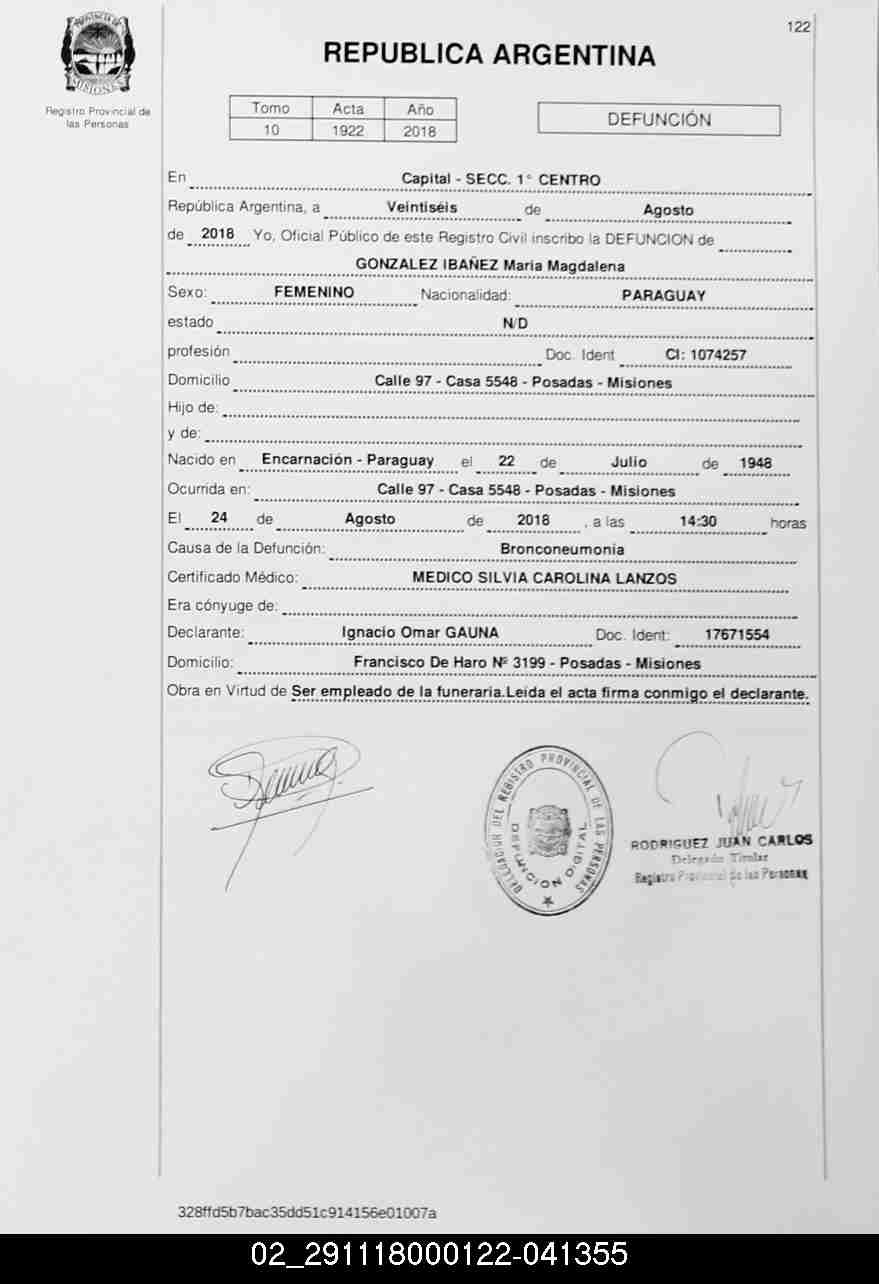 122
PROVINCIA DE
MISIONES
Registro Provincial de
las Personas
REPUBLICA ARGENTINA
Tomo Acta Año
10 1922 2018
DEFUNCIÓN
En Capital - SECC. 1° CENTRO
República Argentina, a Veintiséis de Agosto
de 2018 Yo, Oficial Público de este Registro Civil inscribo la DEFUNCION de
GONZALEZ IBAÑEZ Maria Magdalena
Sexo: FEMENINO Nacionalidad: PARAGUAY
estado N/D
profesión Doc. Ident CI: 1074257
Domicilio Calle 97 - Casa 5548 - Posadas - Misiones
Hijo de:
y de:
Nacido en Encarnación - Paraguay el 22 de Julio de 1948
Ocurrida en: Calle 97 - Casa 5548 - Posadas - Misiones
El 24 de Agosto de 2018 , a las 14:30 horas
Causa de la Defunción: Bronconeumonía
Certificado Médico: MEDICO SILVIA CAROLINA LANZOS
Era cónyuge de:
Declarante: Ignacio Omar GAUNA Doc. Ident: 17671554
Domicilio: Francisco De Haro Nº 3199 - Posadas - Misiones
Obra en Virtud de Ser empleado de la funeraria.Leída el acta firma conmigo el declarante.
DEL REGISTRO PROVINCIAL DE LAS PERSONAS
DEFUNCION DIGITAL
RODRIGUEZ JUAN CARLOS
Delegado Titular
Registro Provincial de las Personas
328ffd5b7bac35dd51c914156e01007a
02_291118000122-041355